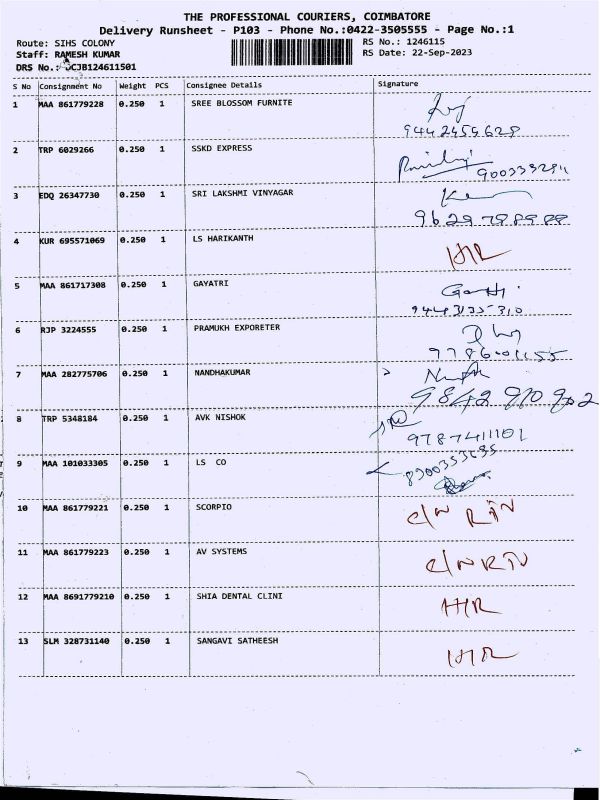 THE PROFESSIONAL COURIERS, COIMBATORE
Delivery Runsheet - P103 - Phone No.:0422-3505555 - Page No.:1
Route: SIHS COLONY RS No.: 1246115
Staff: RAMESH KUMAR RS Date: 22-Sep-2023
DRS No.: JCJB124611501
S No Consignment No Weight PCS Consignee Details Signature
1 MAA 861779228 0.250 1 SREE BLOSSOM FURNITE
9442459628
2 TRP 6029266 0.250 1 SSKD EXPRESS
3 EDQ 26347730 0.250 1 SRI LAKSHMI VINYAGAR
9629798988
4 KUR 695571069 0.250 1 LS HARIKANTH H/R
5 MAA 861717308 0.250 1 GAYATRI
6 RJP 3224555 0.250 1 PRAMUKH EXPORETER
9786001155
7 MAA 282775706 0.250 1 NANDHAKUMAR
9842 910 902
8 TRP 5348184 0.250 1 AVK NISHOK
9787411101
9 MAA 101033305 0.250 1 LS CO
10 MAA 861779221 0.250 1 SCORPIO
11 MAA 861779223 0.250 1 AV SYSTEMS
12 MAA 8691779210 0.250 1 SHIA DENTAL CLINI H/R
13 SLM 328731140 0.250 1 SANGAVI SATHEESH H/R